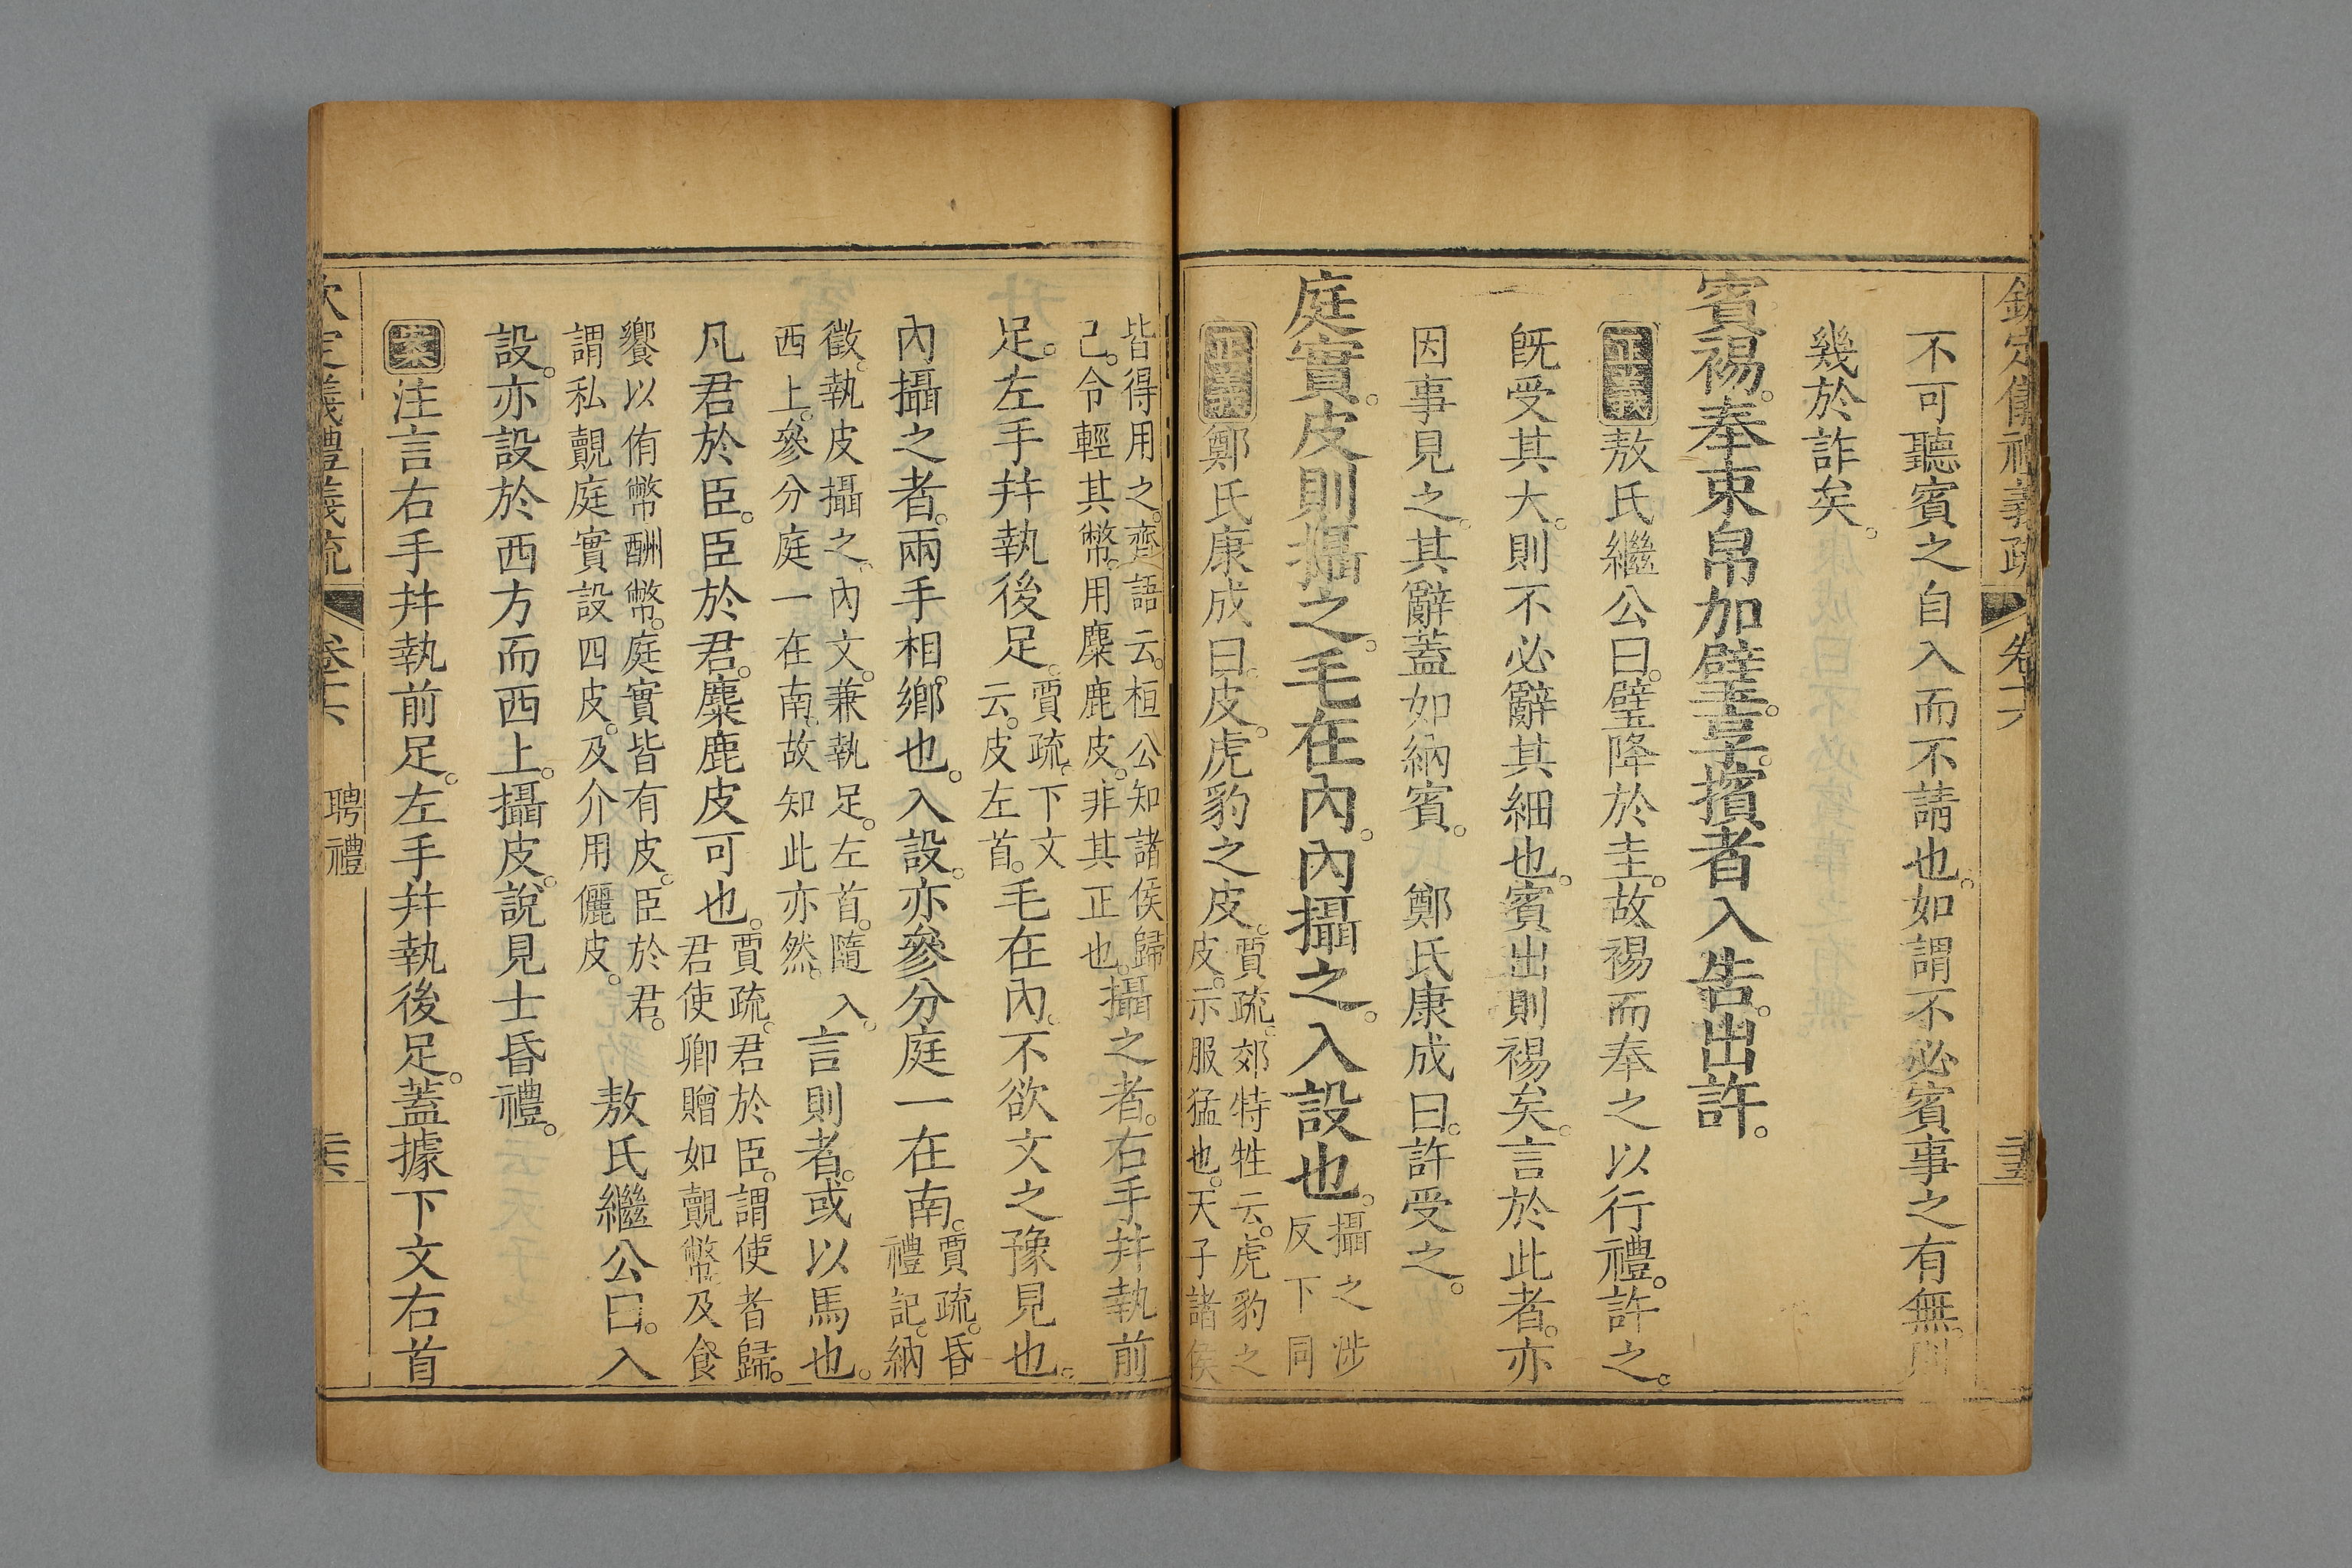 欽定儀禮義疏 卷十六 三五
不可聽賓之自入而不請也。如謂不必賓事之有無。則
幾於詐矣。
賓裼。奉束帛加璧。享。擯者入告。出許。
正義 敖氏繼公曰。璧降於圭。故裼而奉之以行禮。許之。
既受其大。則不必辭其細也。賓出則裼矣。言於此者。亦
因事見之。其辭蓋如納賓。 鄭氏康成曰。許受之。
庭實。皮則攝之。毛在內。內攝之。入設也。
攝之涉
反下同
正義 鄭氏康成曰。皮。虎豹之皮。
賈疏。郊特牲云。虎豹之
皮。示服猛也。天子諸侯
皆得用之。齊語云。桓公知諸侯歸
己。令輕其幣。用麋鹿皮。非其正也。
攝之者。右手幷執前
足。左手幷執後足。
賈疏。下文
云。皮左首。
毛在內。不欲文之豫見也。
內攝之者。兩手相鄉也。入設。亦參分庭一在南。
賈疏。昏
禮記。納
徵。執皮攝之。內文。兼執足。左首。隨入。
西上。參分庭一在南。故知此亦然。
言則者。或以馬也。
凡君於臣。臣於君。麋鹿皮可也。
賈疏。君於臣。謂使者歸。
君使卿贈如覿幣及食
饗以侑幣酬幣。庭實皆有皮。臣於君。
謂私覿庭實設四皮。及介用儷皮。
敖氏繼公曰。入
設。亦設於西方而西上。攝皮。說見士昏禮。
案 注言右手幷執前足。左手幷執後足。蓋據下文右首
欽定儀禮義疏 卷十六 聘禮 三六